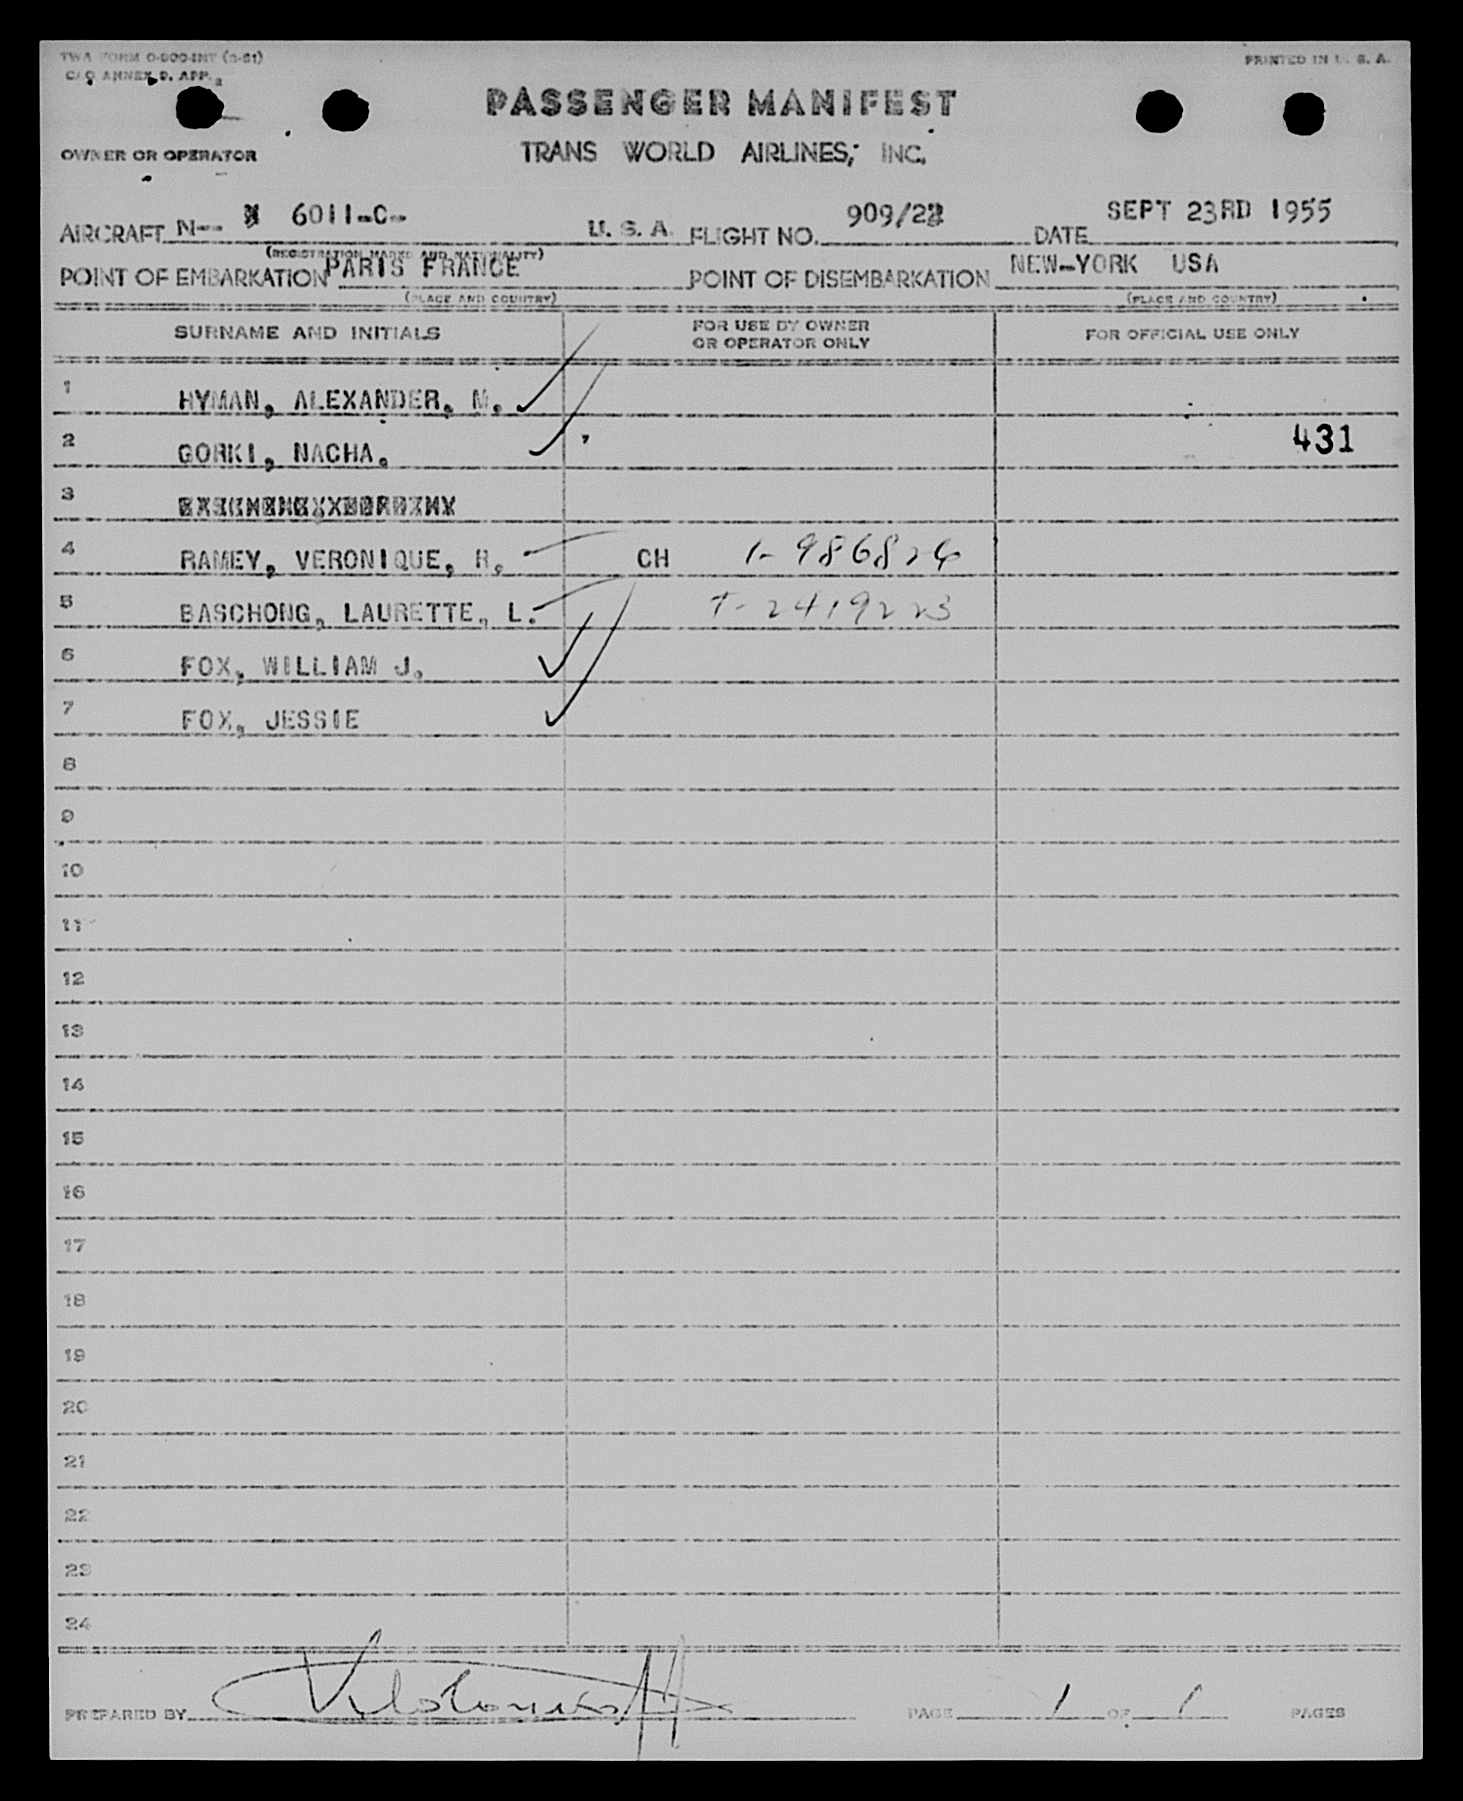 TWA FORM O-9004INT (3-51)
C/O ANNEX 9. APP. 2
PRINTED IN U. S. A.
PASSENGER MANIFEST
OWNER OR OPERATOR
TRANS WORLD AIRLINES, INC.
AIRCRAFT N-- 6011-C-- U. S. A. FLIGHT NO. 909/22 DATE SEPT 23RD 1955
(REGISTRATION MARKS AND NATIONALITY)
POINT OF EMBARKATION PARIS FRANCE POINT OF DISEMBARKATION NEW-YORK USA
(PLACE AND COUNTRY) (PLACE AND COUNTRY)
SURNAME AND INITIALS
FOR USE BY OWNER
OR OPERATOR ONLY
FOR OFFICIAL USE ONLY
1 HYMAN, ALEXANDER, M.
2 GORKI, NACHA. 431
3
4 RAMEY, VERONIQUE, R. CH 1-986826
5 BASCHONG, LAURETTE, L. T-2419223
6 FOX, WILLIAM J.
7 FOX, JESSIE
8
9
10
11
12
13
14
15
16
17
18
19
20
21
22
23
24
PREPARED BY PAGE 1 OF 1 PAGES